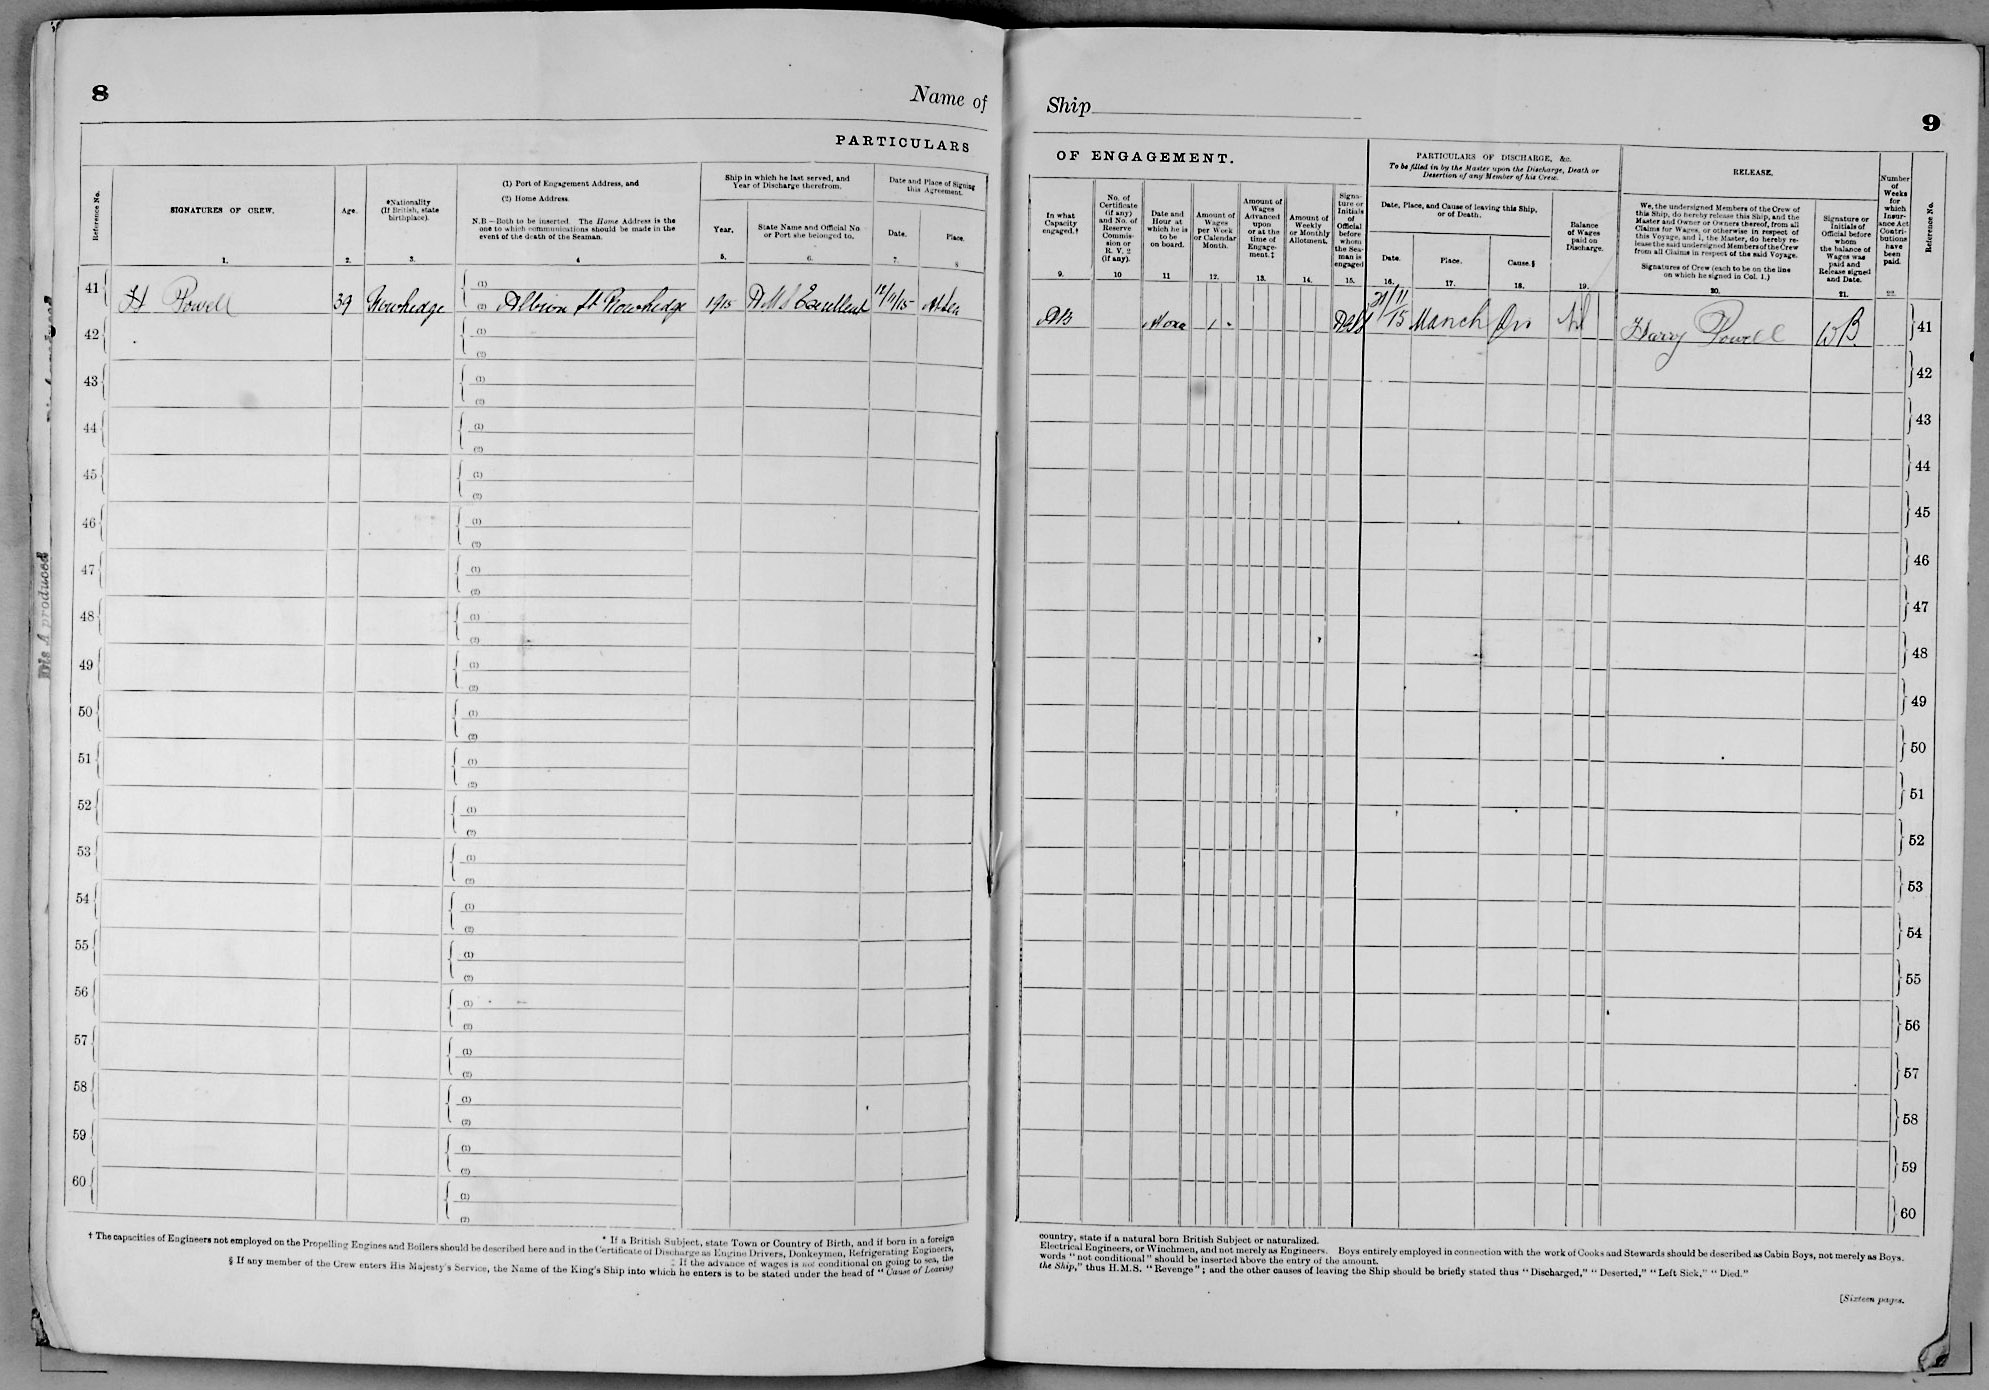 8
Name of
PARTICULARS
Reference No.
SIGNATURES OF CREW.
Age.
*Nationality
(If British, state
birthplace).
(1) Port of Engagement Address, and
(2) Home Address.
N.B.—Both to be inserted. The Home Address is the
one to which communications should be made in the
event of the death of the Seaman.
Ship in which he last served, and
Year of Discharge therefrom.
Year.
State Name and Official No
or Port she belonged to.
Date and Place of Signing
this Agreement.
Date.
Place.
1. 2. 3. 4 5. 6. 7. 8
41 H Powell 39 Rowhedge (1) (2) Albion St Rowhedge 1915 HMS Excellent 12/11/15
42 (1)
(2)
43 (1)
(2)
44 (1)
(2)
45 (1)
(2)
46 (1)
(2)
47 (1)
(2)
48 (1)
(2)
49 (1)
(2)
50 (1)
(2)
51 (1)
(2)
52 (1)
(2)
53 (1)
(2)
54 (1)
(2)
55 (1)
(2)
56 (1)
(2)
57 (1)
(2)
58 (1)
(2)
59 (1)
(2)
60 (1)
(2)
* If a British Subject, state Town or Country of Birth, and if born in a foreign
† The capacities of Engineers not employed on the Propelling Engines and Boilers should be described here and in the Certificate of Discharge as Engine Drivers, Donkeymen, Refrigerating Engineers,
‡ If the advance of wages is not conditional on going to sea, the
§ If any member of the Crew enters His Majesty's Service, the Name of the King's Ship into which he enters is to be stated under the head of "Cause of Leaving
Dis A produced
Ship
9
OF ENGAGEMENT.
PARTICULARS OF DISCHARGE, &c.
To be filled in by the Master upon the Discharge, Death or
Desertion of any Member of his Crew.
RELEASE.
In what
Capacity
engaged.†
No. of
Certificate
(if any)
and No. of
Reserve
Commis-
sion or
R. V. 2
(if any).
Date and
Hour at
which he is
to be
on board.
Amount of
Wages
per Week
or Calendar
Month.
Amount of
Wages
Advanced
upon
or at the
time of
Engage-
ment.‡
Amount of
Weekly
or Monthly
Allotment.
Signa-
ture or
Initials
of
Official
before
whom
the Sea-
man is
engaged
Date, Place, and Cause of leaving this Ship,
or of Death.
Date.
Place.
Cause.§
Balance
of Wages
paid on
Discharge.
We, the undersigned Members of the Crew of
this Ship, do hereby release this Ship, and the
Master and Owner or Owners thereof, from all
Claims for Wages, or otherwise in respect of
this Voyage, and I, the Master, do hereby re-
lease the said undersigned Members of the Crew
from all Claims in respect of the said Voyage.
Signatures of Crew (each to be on the line
on which he signed in Col. 1.)
Signature or
Initials of
Official before
whom
the balance of
Wages was
paid and
Release signed
and Date.
Number
of
Weeks
for
which
Insur-
ance Act
Contri-
butions
have
been
paid.
Reference No.
9. 10 11 12. 13. 14. 15. 16. 17. 18. 19. 20. 21. 22.
AB 1/- 21/11/15 Manch Dis Nil Harry Powell WB 41
42
43
44
45
46
47
48
49
50
51
52
53
54
55
56
57
58
59
60
country, state if a natural born British Subject or naturalized.
Electrical Engineers, or Winchmen, and not merely as Engineers. Boys entirely employed in connection with the work of Cooks and Stewards should be described as Cabin Boys, not merely as Boys.
words "not conditional" should be inserted above the entry of the amount.
the Ship," thus H.M.S. "Revenge"; and the other causes of leaving the Ship should be briefly stated thus "Discharged," "Deserted," "Left Sick," "Died."
[Sixteen pages.